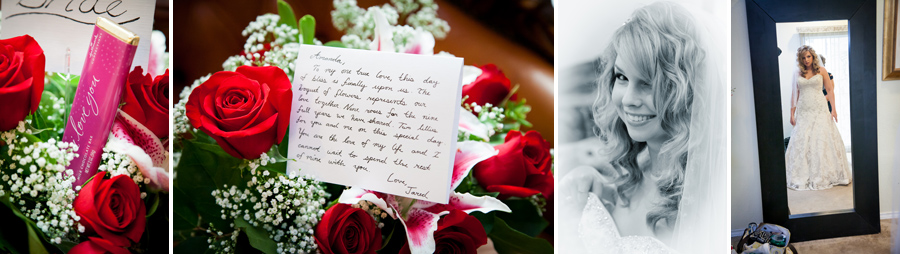 Bride
I love You
Amanda,
To my one true love, this day
of bliss is finally upon us. The
bouquet of flowers represents our
love together. Nine roses for the nine
full years we have shared. Two lillies
for you and me on this special day.
You are the love of my life and I
cannot wait to spend the rest
of mine with you.
Love,
Jared